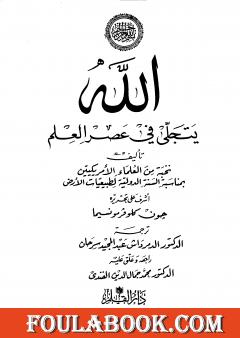 الله
يتجلى في عصر العلم
تأليف
نخبة من العلماء الأمريكيين
بمناسبة السنة الدولية لطبيعيات الأرض
أشرف على تحريره
جون كلوفر مونسيما
ترجمة
الدكتور الدمرداش عبد المجيد سرحان
راجعه وعلق عليه
الدكتور محمد جمال الدين الفندي
دار القلم
FOULABOOK.COM